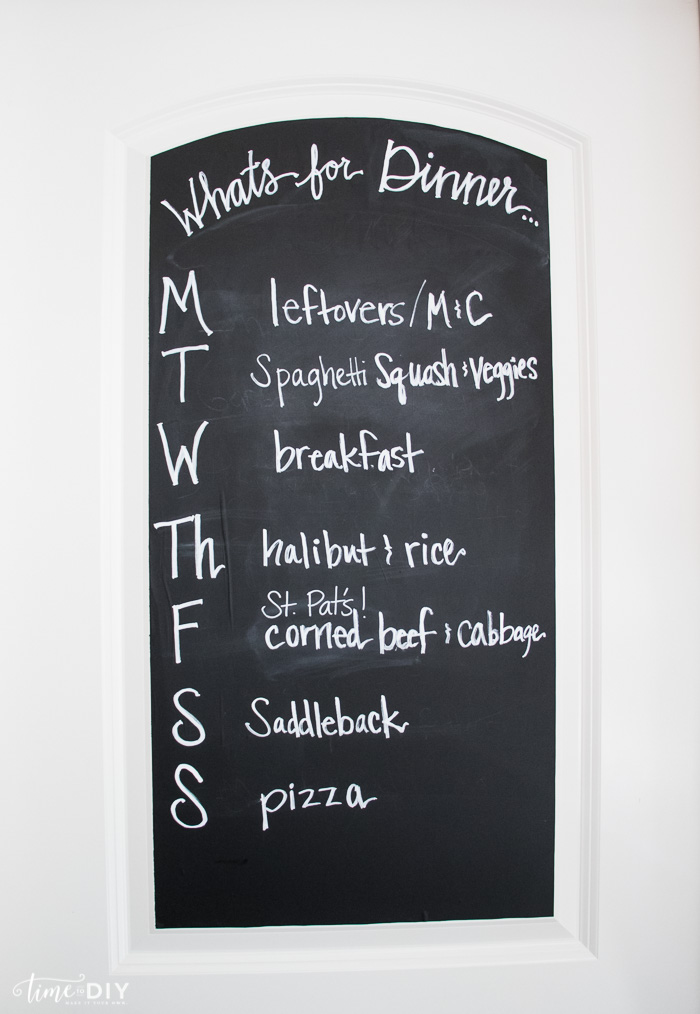 Whats for Dinner...
M leftovers/M&C
T Spaghetti Squash & Veggies
W breakfast
Th halibut & rice
St. Pat's!
F corned beef & cabbage
S Saddleback
S pizza
time to DIY